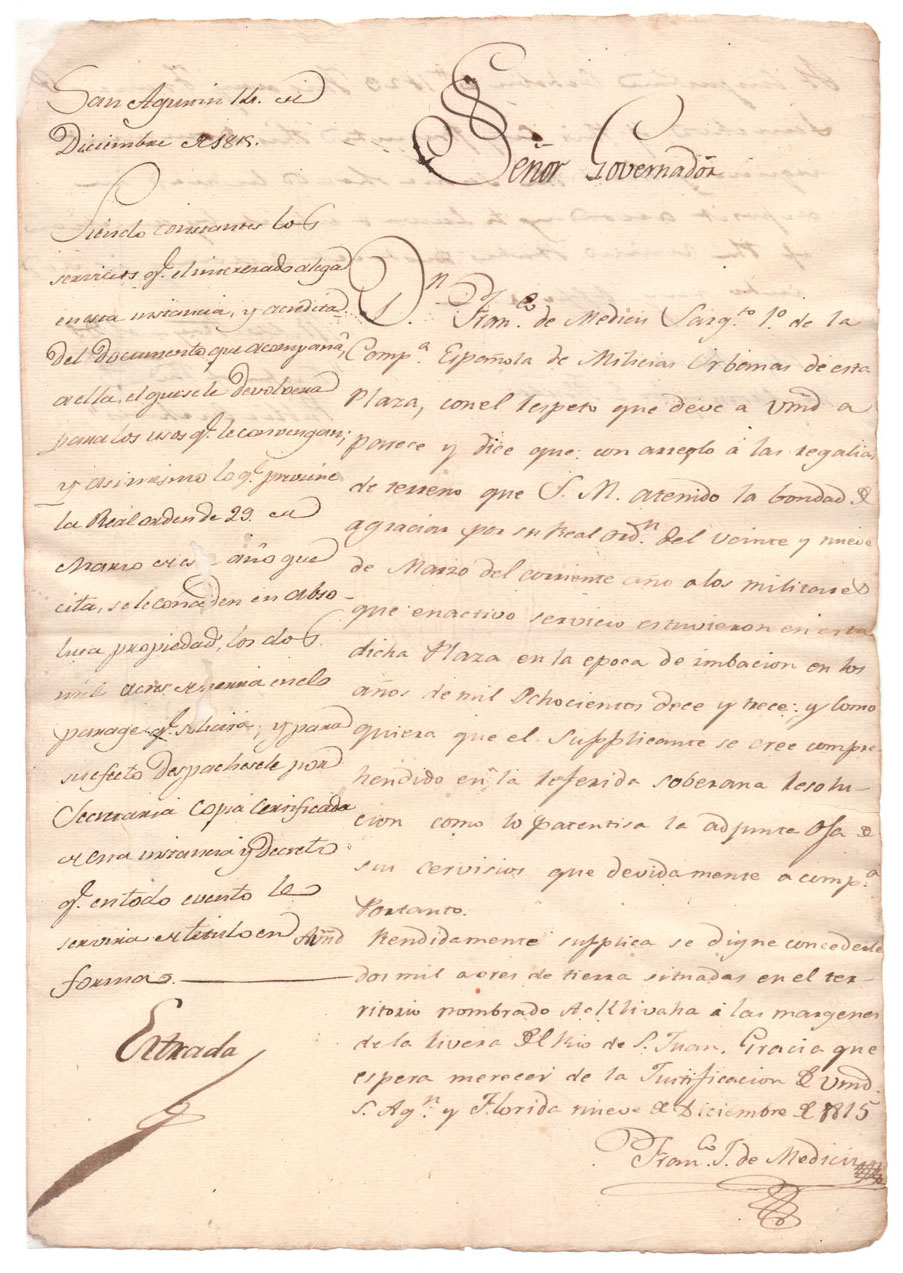 San Agustin 12. de
Diciembre de 1815.
Siendo constantes los
servicios qe. el interesado alega
en esta instancia, y acredita
del documento que acompaña,
a ella, el que se le devolvera
para los usos qe. le convengan;
y asimismo lo qe. previene
la Real orden de 29. de
Marzo de este año que
cita, se le conceden en abso-
luta propiedad, los dos
mil acres de tierra en el
parage qe. solicita; y para
su efecto despachesele por
Secretaria copia certificada
de esta instancia y decreto
qe. en todo evento le
servira de titulo en
forma.
Estrada
Señor Governador
Dn. Franco. de Medicis Sargto. 1o. de la
Compa. Española de Milicias Urbanas de esta
Plaza, con el respeto que deve a Vmd a
parece y dice que con arreglo á las regalias
de terreno que S. M. atenido la bondad de
agraciar por su Real ordn. del veinte y nueve
de Marzo del corriente año a los militares
que en activo servicio estuvieron en esta
dicha Plaza en la epoca de imbacion en los
años de mil Ochocientos doce y trece; y como
quiera que el Supplicante se cree compre
hendido en la referida soberana resolu-
cion como lo patentisa la adjunta de
sus cervicios que devidamente acompa.
Portanto.
A Vmd Rendidamente supplica se digne concederle
dos mil acres de tierra situadas en el ter-
ritorio nombrado Acklivaha á las margenes
de la rivera del Rio de S. Juan. Gracia que
espera merecer de la Justificacion de Vmd.
S. Agn. y Florida nueve de Diciembre de 1815
Franco. J. de Medicis